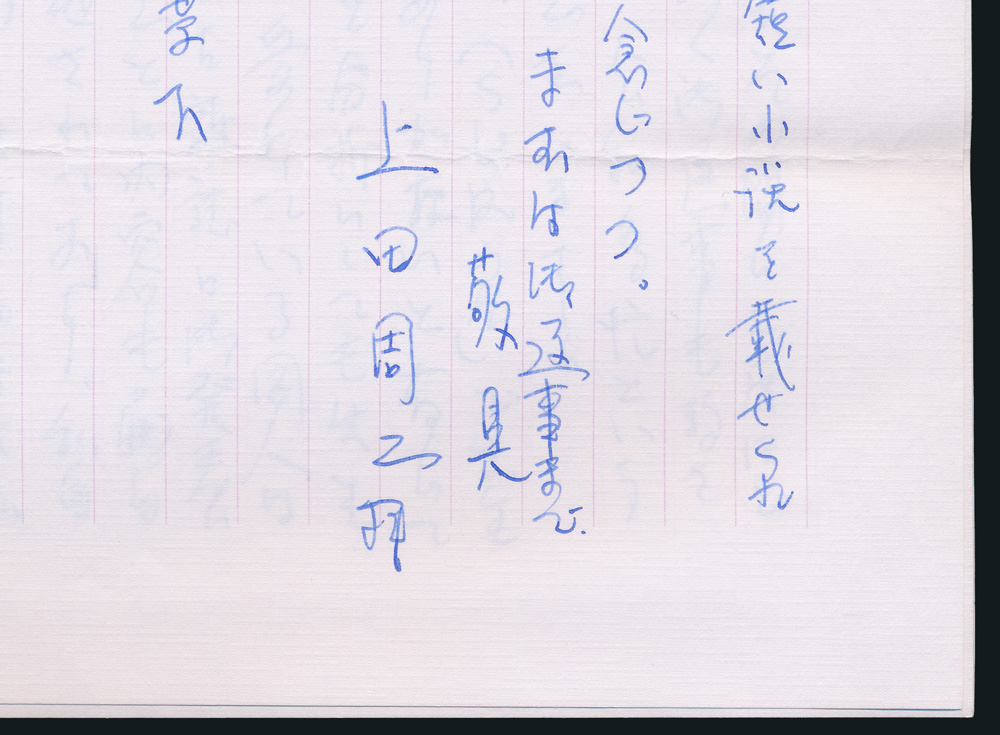 短い小説を載せられ
念じつつ。
まずは御返事まで.
敬具
上田周二拝